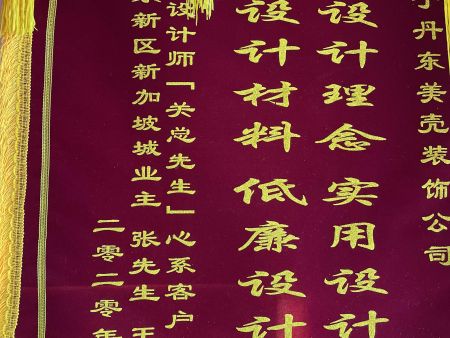 丹东美壳装饰公司
设计理念实用设计
设计材料低廉设计
设计师「关总先生」心系客户
新区新加坡城业主 张先生 王
二零二零年